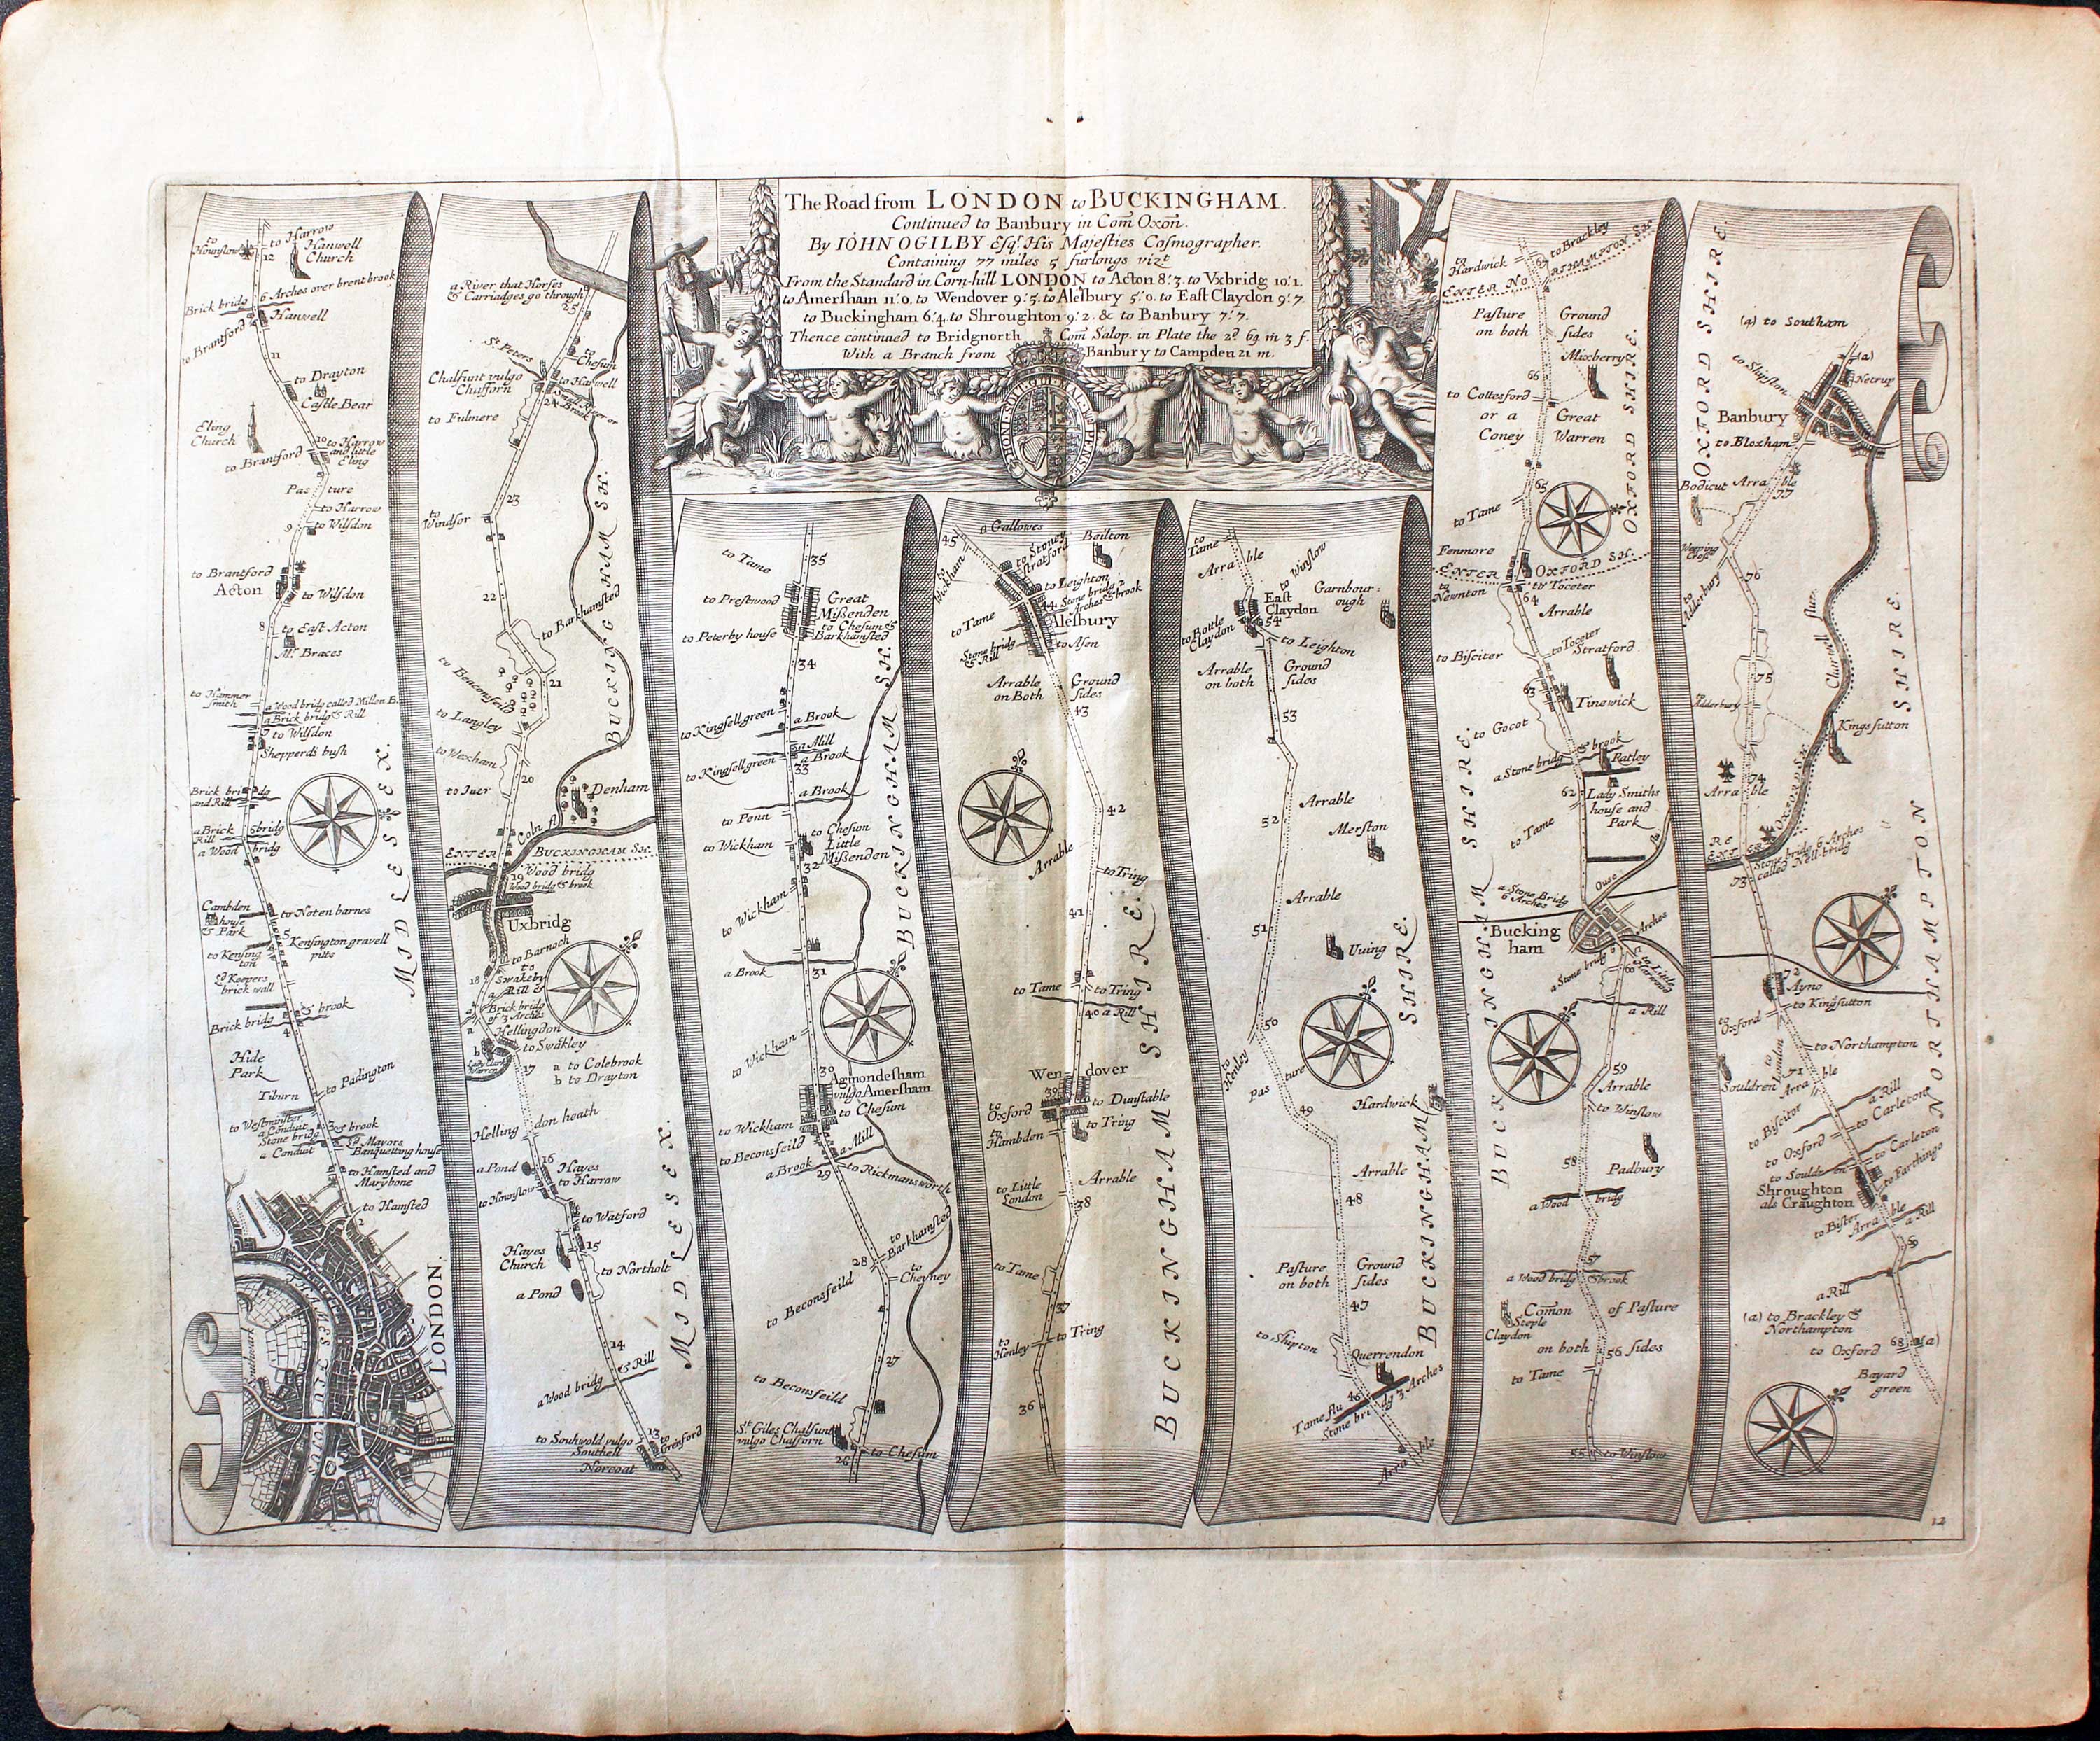 The Road from LONDON to BUCKINGHAM.
Continued to Banbury in Com̃ Oxõn.
By IOHN OGILBY Esqr. His Majesties Cosmographer.
Containing 77 miles 5 furlongs vizt
From the Standard in Corn-hill LONDON to Acton 8:'3. to Vxbridg 10:'1.
to Amersham 11:'0. to Wendover 9:'5. to Alesbury 5:'0. to East Claydon 9:'7.
to Buckingham 6:'4. to Shroughton 9:'2. & to Banbury 7:'7.
Thence continued to Bridgnorth Com̃ Salop. in Plate the 2d. 64 m 3 f.
With a Branch from Banbury to Campden 21 m.
HONI SOIT QUI MAL Y PENSE
to Hounslow
to Harrow
12
Hanwell
Church
Brick bridg
6 Arches over brent brook
Hanwell
to Brantford
11
to Drayton
Castle Bear
Eling
Church
10
to Harrow
and little
Eling
to Brantford
Pasture
to Harrow
9
to Wilsdon
to Brantford
Acton
to Wilsdon
8
to East Acton
Mr. Braces
to Hammer
smith
a Wood bridg called Millon B.
a Brick bridg & Rill
7 to Wilsdon
Shepperds bush
Brick bridg
and Rill
a Brick bridg
Rill 6
a Wood bridg
MIDLESEX.
Cambden
house
& Park
to Noten barnes
5
Kensington gravell
pitts
to Kensing
ton
Ld. Keepers
brick wall
Brick bridg & brook
4
Hide
Park
to Padington
Tiburn
to Westminster
a Conduit
Stone bridg 3 & brook
a Conduit
Ld. Mayors
Banquetting house
to Hamsted and
Marybone
to Hamsted
2
LONDON.
Southwark
THAMES FLUVIUS
a River that Horses
& Carriadges go through
25
St. Peters
Chalfunt vulgo
Chafforn
to Chesum
to Harwell
24
Small River or
Brook
to Fulmere
23
to Windsor
22
to Barkhamsted
BUCKINGHAM SH.
to Beaconsfeild
21
to Langley
to Wexham
20
to Iuer
Denham
Coln fl
ENTER BUCKINGHAM SH.
Wood bridg
19
Wood bridg & brook
Uxbridg
to Barnoch
to
Swakely
18
a Rill &
Brick bridg
of 3 Arches
a
Hellingdon
b
to Swakley
17
a to Colebrook
b to Drayton
Hellingdon heath
16
a Pond
Hayes
to Harrow
to Hounslow
to Watford
15
Hayes
Church
to Northolt
a Pond
14
a Wood bridg & Rill
MIDLESEX.
13
to Grinford
to Southwold vulgo
Southell
Norcoat
35
to Tame
to Prestwood
Great
Mißenden
to Peterby house
to Chesum &
Barkhamsted
34
to Kingsell green
a Brook
a Mill
to Kingsell green
33
a Brook
a Brook
to Penn
to Chesum
Little
Mißenden
to Wickham
32
to Wickham
BUCKINGHAM SH.
a Brook
31
to Wickham
30
Agmondesham
vulgo Amersham
to Chesum
to Wickham
to Beconsfeild
a Mill
a Brook
29
to Rickmansworth
to Barkhamsted
28
to Cheyney
to Beconsfeild
27
to Beconsfeild
St. Giles Chalfunt
vulgo Chafforn
26
to Chesum
a Gallowes
45
to Stoney
Stratford
Beilton
to Wickham
to Leighton
44
Stone bridg 2
Arches & brook
to Tame
Alesbury
Stone bridg
& Rill
to Asen
Arrable
on Both
Ground
sides
43
42
Arrable
to Tring
41
to Tame
to Tring
40 a Rill
Wendover
39
to Oxford
to Dunstable
to Hambden
to Tring
to Little
London
Arrable
38
to Tame
37
to Tring
to Henley
36
BUCKINGHAM SHIRE.
to Tame
Arrable
to Winslow
East
Claydon
54
Garnbour:
ough
to Bottle
Claydon
to Leighton
Arrable
on both
Ground
sides
53
Arrable
52
Merston
Arrable
51
Uuing
50
to Henley
Pasture
49
Hardwick
Arrable
48
Pasture
on both
Ground
sides
47
to Shipton
Querrendon
46
Tame flu
Stone bridg 3 Arches
Arrable
BUCKINGHAM SHIRE.
to Hardwick
67
to Brackley
ENTER NORTHAMPTON SH.
Pasture
on both
Ground
sides
Mixcberry
66
to Cottesford
or a
Coney
Great
Warren
65
to Tame
OXFORD SHIRE.
Fenmore
ENTER OXFORD SH.
to Newnton
to Toceter
64
Arrable
to Bisciter
to Toceter
Stratford
63
Tinewick
to Gocot
a Stone bridg & brook
Ratley
62
Lady Smiths
house and
Park
to Tame
Ouse
fl
a Stone Bridg
6 Arches
Bucking
ham
Arches
a Stone bridg
to Little
Harwood
a Rill
59
Arrable
to Winslow
58
Padbury
a Wood bridg
57
a Wood bridg & brook
Comon
Steple
Claydon
of Pasture
on both 56 sides
to Tame
55
to Winslow
BUCKINGHAM SHIRE.
OXFORD SHIRE.
(a) to Southam
to Shipston
(a)
Netrup
Banbury
to Bloxham
Bodicut
Arrable
77
Weeping
Cross
76
to Adderbury
Charwell fluv.
75
Adderbury
Kings sutton
74
Arrable
OXFORD SH.
RE
ENTER
Stone bridg 6 Arches
called Nell-bridg
73
72
Ayno
to Kingsutton
to Oxford
to London
to Northampton
71
Souldren
Arrable
to Bisciter
a Rill
to Carleton
to Oxford
to Carleton
to Souldern
to Farthingo
Shroughton
als Craughton
to Bister
Arrable
a Rill
69
a Rill
(a) to Brackley &
Northampton
68
(a)
to Oxford
Bayard
green
NORTHAMPTON SHIRE.
12